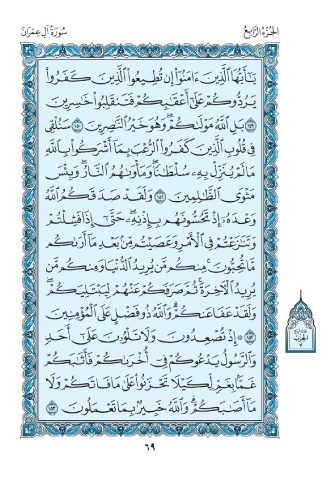 الجزء الرابع
سورة آل عمران
يَٰٓأَيُّهَا ٱلَّذِينَ ءَامَنُوٓا۟ إِن تُطِيعُوا۟ ٱلَّذِينَ كَفَرُوا۟
يَرُدُّوكُمْ عَلَىٰٓ أَعْقَٰبِكُمْ فَتَنقَلِبُوا۟ خَٰسِرِينَ
١٤٩ بَلِ ٱللَّهُ مَوْلَىٰكُمْ وَهُوَ خَيْرُ ٱلنَّٰصِرِينَ ١٥٠ سَنُلْقِى
فِى قُلُوبِ ٱلَّذِينَ كَفَرُوا۟ ٱلرُّعْبَ بِمَآ أَشْرَكُوا۟ بِٱللَّهِ
مَا لَمْ يُنَزِّلْ بِهِۦ سُلْطَٰنًا وَمَأْوَىٰهُمُ ٱلنَّارُ وَبِئْسَ
مَثْوَى ٱلظَّٰلِمِينَ ١٥١ وَلَقَدْ صَدَقَكُمُ ٱللَّهُ
وَعْدَهُۥٓ إِذْ تَحُسُّونَهُم بِإِذْنِهِۦ حَتَّىٰٓ إِذَا فَشِلْتُمْ
وَتَنَٰزَعْتُمْ فِى ٱلْأَمْرِ وَعَصَيْتُم مِّنۢ بَعْدِ مَآ أَرَىٰكُم
مَّا تُحِبُّونَ مِنكُم مَّن يُرِيدُ ٱلدُّنْيَا وَمِنكُم مَّن
يُرِيدُ ٱلْءَاخِرَةَ ثُمَّ صَرَفَكُمْ عَنْهُمْ لِيَبْتَلِيَكُمْ
وَلَقَدْ عَفَا عَنكُمْ وَٱللَّهُ ذُو فَضْلٍ عَلَى ٱلْمُؤْمِنِينَ
١٥٢ ۞ إِذْ تُصْعِدُونَ وَلَا تَلْوُۥنَ عَلَىٰٓ أَحَدٍ
وَٱلرَّسُولُ يَدْعُوكُمْ فِىٓ أُخْرَىٰكُمْ فَأَثَٰبَكُمْ
غَمًّۢا بِغَمٍّ لِّكَيْلَا تَحْزَنُوا۟ عَلَىٰ مَا فَاتَكُمْ وَلَا
مَآ أَصَٰبَكُمْ وَٱللَّهُ خَبِيرٌۢ بِمَا تَعْمَلُونَ ١٥٣
الحزب
٧
٦٩